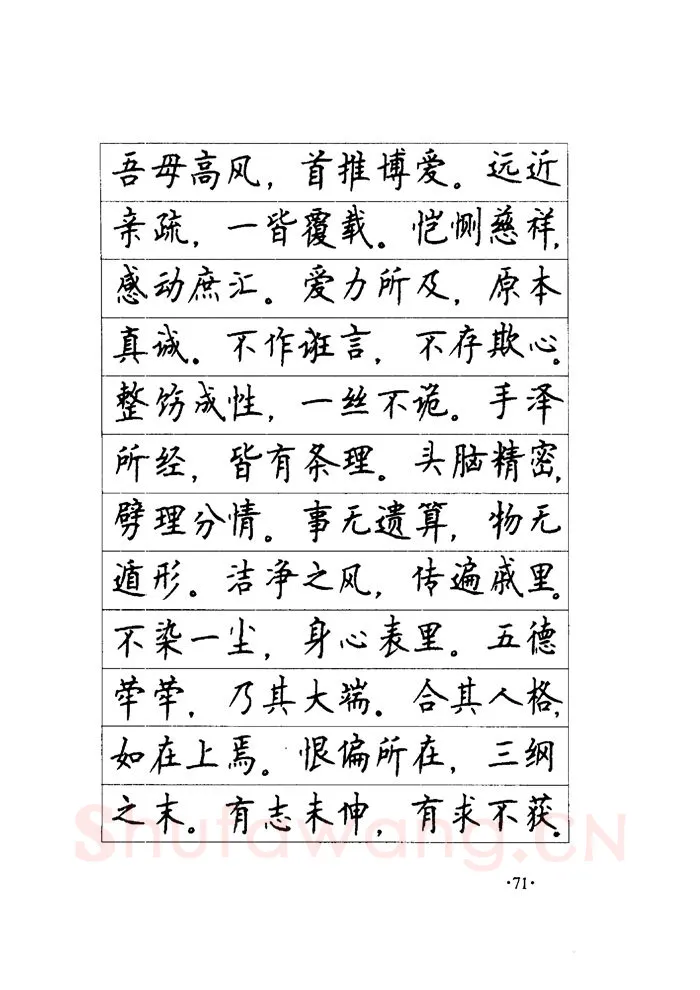 吾母高风，首推博爱。远近
亲疏，一皆覆载。恺恻慈祥，
感动庶汇。爱力所及，原本
真诚。不作诳言，不存欺心。
整饬成性，一丝不诡。手泽
所经，皆有条理。头脑精密，
劈理分情。事无遗算，物无
遁形。洁净之风，传遍戚里。
不染一尘，身心表里。五德
荦荦，乃其大端。合其人格，
如在上焉。恨偏所在，三纲
之末。有志未伸，有求不获。
Shufawang.CN
·71·